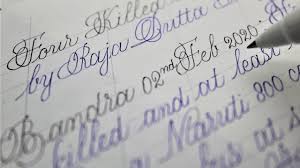 Four Killed
by Raja Dutta
Bandra 02nd Feb 2020:
killed and at least
a Maruti 800 c
as at s